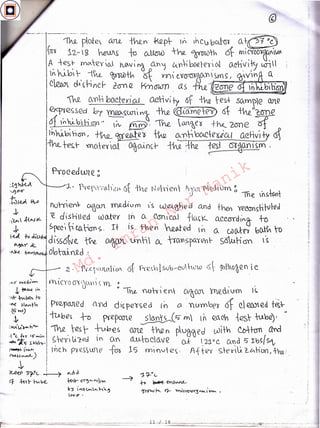 The plates are then kept in incubator at (37°c)
for 12-18 hours to allow the growth of microorganism
A test material having any antibacterial activity will
inhibit the growth of microorganisms, giving a
clear distinct zone known as the "zone of inhibition"
The antibacterial activity of the test sample are
expressed by measuring the (diameter) of the zone
of inhibition in mm. The larger the zone of
inhibition, the greater the antibacterial activity of
the test material against the the test organism.
Procedure:
1. Preparation of the Nutrient Agar Medium: The instant
nutrient agar medium is weighed and then reconstituted
distilled water in a conical flask according to
specifications. It is then heated in a water bath to
dissolve the agar until a transparent solution is
obtained.
2. Preparation of Fresh sub-culture of pathogenic
microorganism:
The nutrient agar medium is
prepared and dispersed in a number of cleaned test
tubes to prepare slants (5 ml in each test tube).
The test tubes are then plugged with cotton and
sterilized in an autoclave at 121°c and 5 lbs/sq.
inch pressure for 15 minutes. After sterilization, the
keep 37°c
if test tube
add
test organism
by inoculating
loop.
37°c
to ensure
growth of microorganism.
Md. Imran Nur Manik
11 / 18